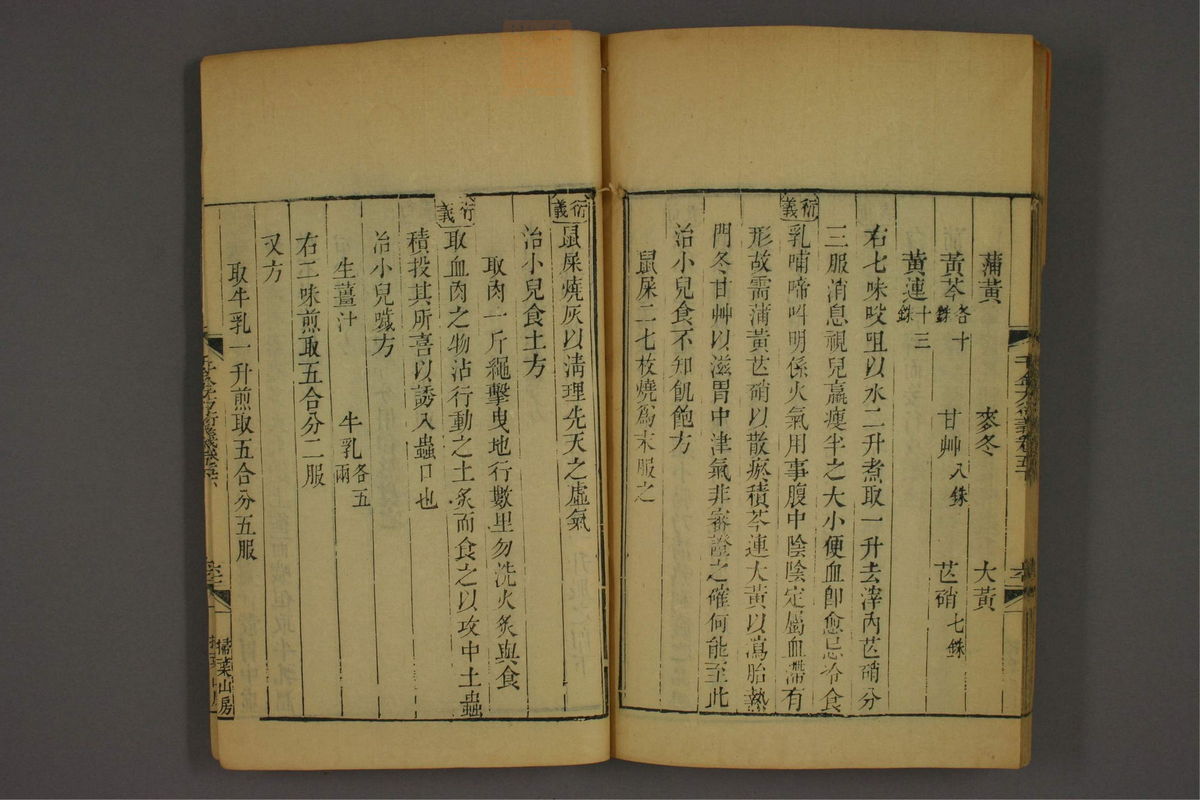 蒲黃 麥冬 大黃
黃芩各十銖 甘艸八銖 芒硝七銖
黃連十三銖
右七味㕮咀以水二升煮取一升去滓內芒硝分
三服消息視兒羸瘦半之大小便血卽愈忌冷食
衍義
乳哺啼呌明係火氣用事腹中陰陰定屬血滯有
形故需蒲黃芒硝以散瘀積芩連大黃以瀉胎熱
門冬甘艸以滋胃中津氣非審證之確何能至此
治小兒食不知飢飽方
鼠屎二七枚燒爲末服之
衍義
鼠屎燒灰以淸理先天之虛氣
治小兒食土方
取肉一斤繩擊曳地行數里勿洗火炙與食
衍義
取血肉之物沾行動之土炙而食之以攻中土蟲
積投其所喜以誘入蟲口也
治小兒噦方
生薑汁 牛乳各五兩
右二味煎取五合分二服
又方
取牛乳一升煎取五合分五服
掃葉山房